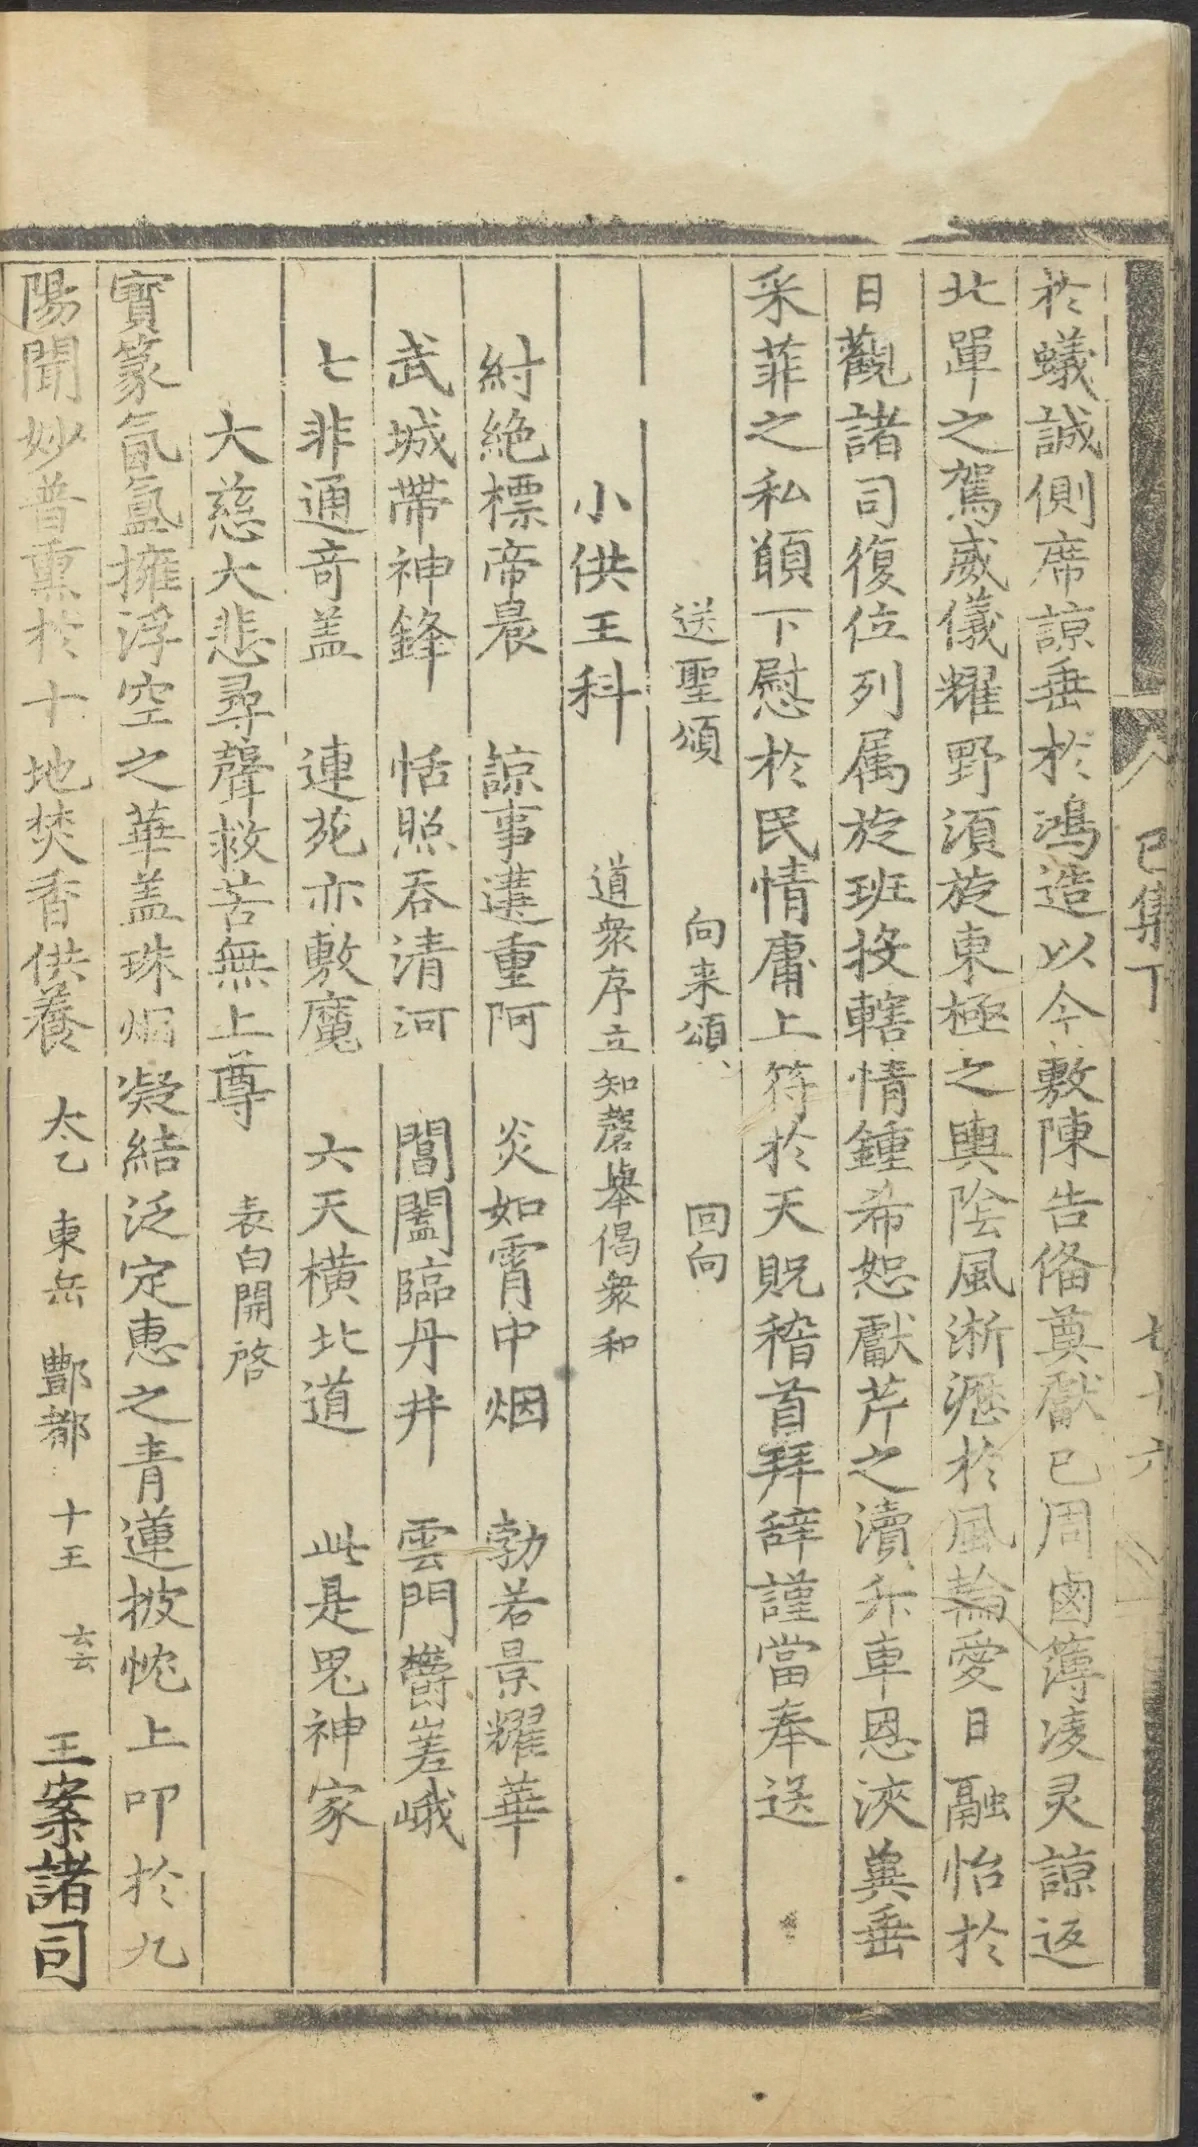 巳集丁 七十六
於蟻誠側席諒垂於鴻造以今敷陳告俻奠獻已周鹵簿凌灵諒返
北單之駕威儀耀野須旋東極之輿陰風淅瀝於風輪愛日融怡於
日觀諸司復位列属旋班投轄情鍾希恕獻芹之瀆升車恩浹兾垂
采菲之私顓下慰於民情庸上符於天貺稽首拜辞謹當奉送
送聖頌 向来頌 回向
小供王科 道衆序立知磬舉偈衆和
紂絶標帝晨 諒事遘重阿 炎如霄中烟 勃若景耀華
武城帶神鋒 恬照吞清河 閶闔臨丹井 雲門欝嵳峨
七非通竒盖 連苑亦敷魔 六天横北道 此是鬼神家
大慈大悲尋聲救苦無上尊 表白開啓
寳篆氤氲擁浮空之華盖珠烟凝結泛定恵之青蓮披忱上叩於九
陽聞妙普熏於十地焚香供養 太乙 東岳 酆都 十王 云云 王案諸司